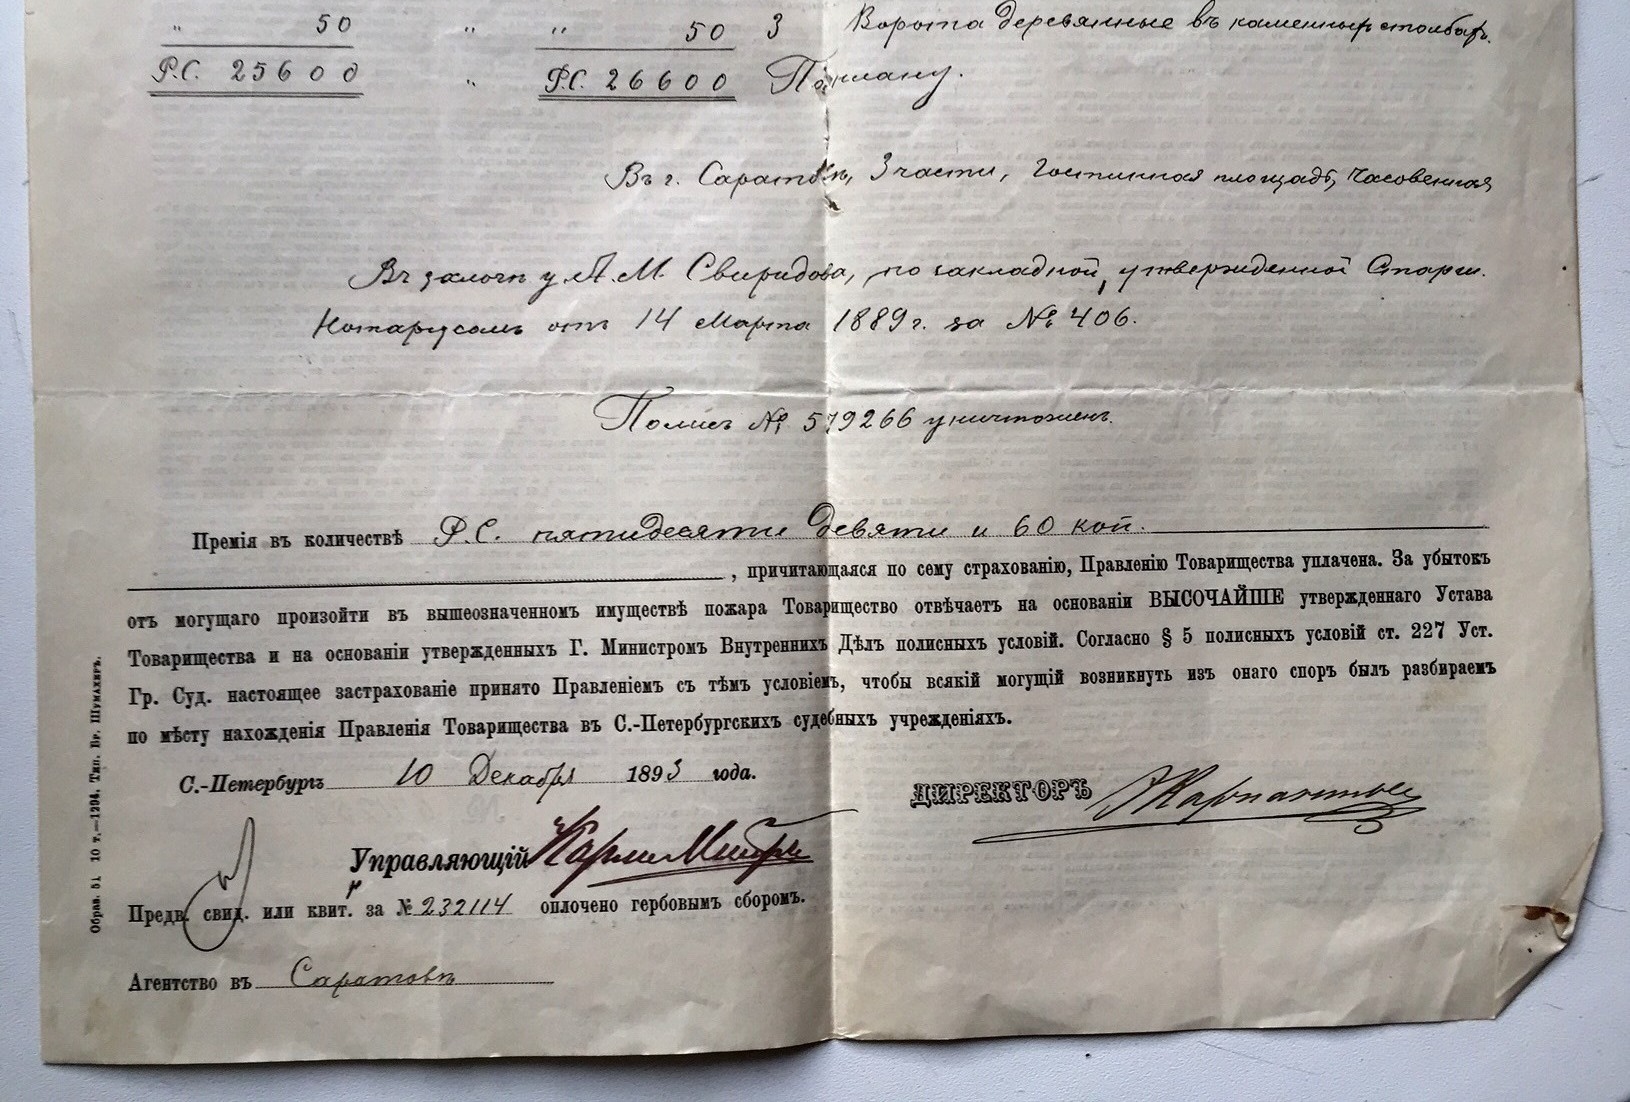 " 50 " " 50 3 Ворота деревянные въ каменныхъ столбахъ.
Р.С. 25600 " Р.С. 26600 По плану.
Въ г. Саратовѣ, 3 части, Гостинная площадь, Часовенная
Въ залогѣ у А. М. Свиридова, по закладной, утвержденной Старш.
Нотарiусомъ отъ 14 Марта 1889 г. за № 406.
Полисъ № 579266 уничтоженъ.
Премія въ количествѣ Р.С. пятидесяти девяти и 60 коп.
, причитающаяся по сему страхованію, Правленію Товарищества уплачена. За убытокъ
отъ могущаго произойти въ вышеозначенномъ имуществѣ пожара Товарищество отвѣчаетъ на основаніи ВЫСОЧАЙШЕ утвержденнаго Устава
Товарищества и на основаніи утвержденныхъ Г. Министромъ Внутреннихъ Дѣлъ полисныхъ условій. Согласно § 5 полисныхъ условій ст. 227 Уст.
Гр. Суд. настоящее застрахованіе принято Правленіемъ съ тѣмъ условіемъ, чтобы всякій могущій возникнуть изъ онаго споръ былъ разбираемъ
по мѣсту нахожденія Правленія Товарищества въ С.-Петербургскихъ судебныхъ учрежденіяхъ.
С.-Петербургъ 10 Декабря 1893 года.
ДИРЕКТОРЪ
Управляющій
Предв. свид. или квит. за № 232114 оплочено гербовымъ сборомъ.
Агентство въ Саратовѣ
Образ. 51 10 т.—1294. Тип. Бр. Шумахеръ.